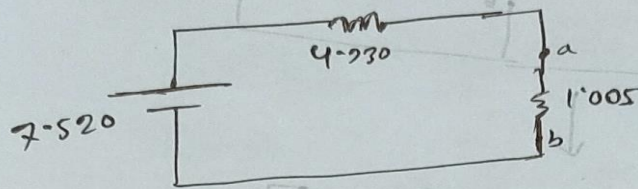 4.230
a
1.005
7.520
b